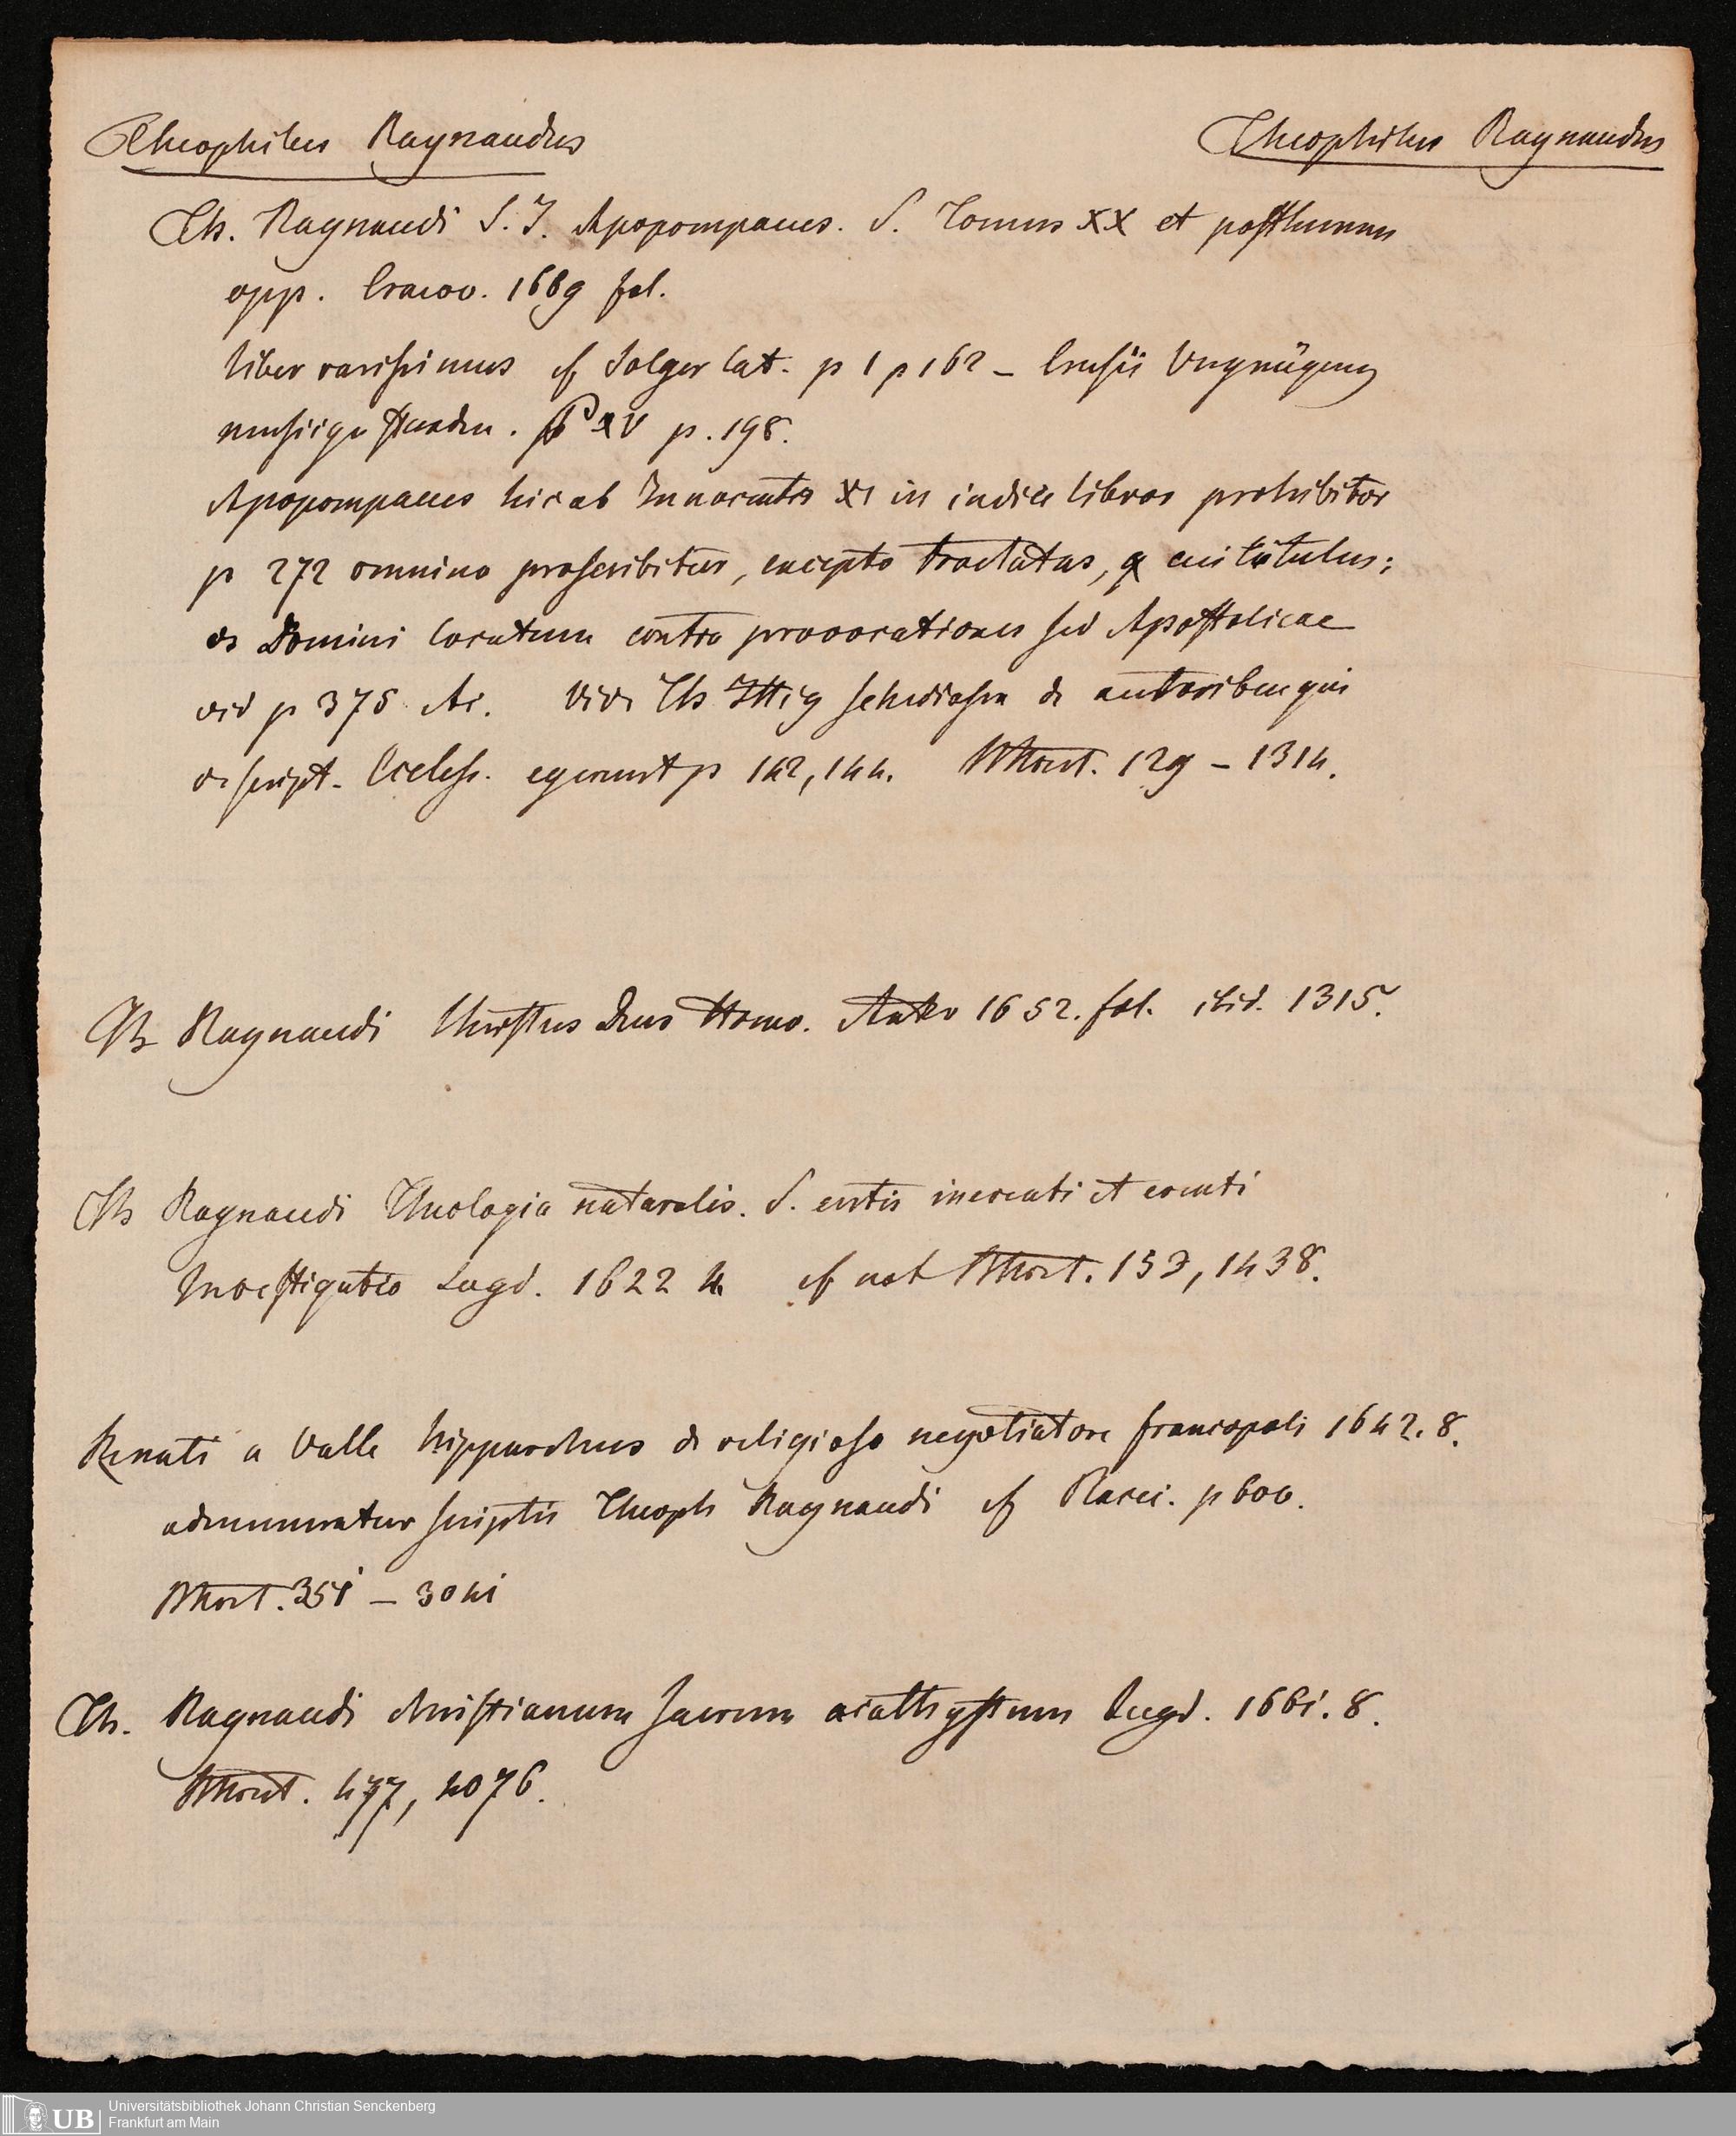 Theophilus Raynaudus
Theophilus Raynaudus
Th. Raynaudi S. J. Apopompaeus. S. Tomus XX et posthumus
opp. Cracov. 1669 fol.
liber rarissimus cf Solger Cat. p 1 p 162 – Crusii Vergnügung
müssiger Stunden. P XV p. 198.
Apopompaeus hic ab Innocentio XI in indice libror prohibitor
p 272 omnino proscribitur, excepto tractatus, cui titulus:
os Domini locutum contra provocationes sed Apostolicae
vid p 375 Ai. vide Th Ittig schediasm de autoribus qui
de script. Eccles. egerunt p 142, 144. 129 – 1314.
Th Raynaudi Christus Deus Homo. Antv 1652. fol. ibid. 1315.
Th Raynaudi Theologia naturalis. S. entis increati et creati
Investigatio Lugd. 1622 4. cf not 153, 1438.
Renati a Valle hipparchus de religioso negotiatore francopoli 1642. 8.
adnumeratur scriptis Theoph Raynaudi cf Placci. p 600.
351 – 3041
Th. Raynaudi christianum sacrum acathystum Lugd. 1661. 8.
477, 4076.
UB
Universitätsbibliothek Johann Christian Senckenberg
Frankfurt am Main